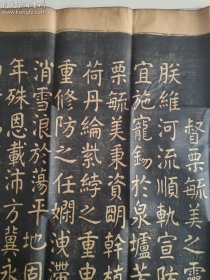 督栗毓美之靈
朕維河流順軌宣防
宜施寵錫於泉壚
栗毓美秉資明幹植
荷丹綸紫綍之重申
重修防之任嫺洩滯
消雪浪於蕩平地固
年殊恩載沛方冀永